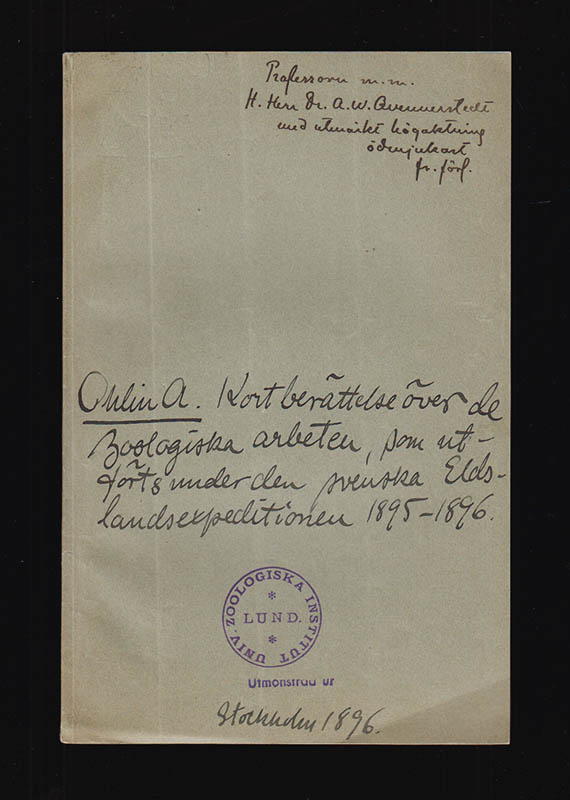 Professorn m.m.
H. Herr Dr. A. W. Quennerstedt
med utmärkt högaktning
ödmjukast
fr. förf.
Ohlin A. Kort berättelse över de
zoologiska arbeten, som ut-
förts under den svenska Elds-
landsexpeditionen 1895-1896.
UNIV. ZOOLOGISKA INSTITUT
* LUND. *
Utmönstrad ur
Stockholm 1896.